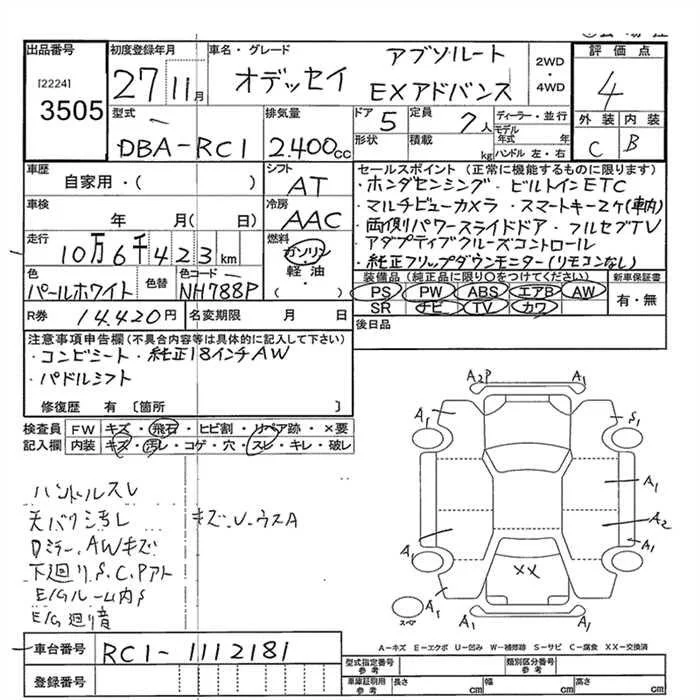 出品番号
[2224]
3505
初度登録年月
27 11月
車名・グレード
オデッセイ
アブソルート
EXアドバンス
2WD
・
4WD
評価点
4
外装 内装
C B
型式
DBA-RC1
排気量
2.400cc
ドア
5
定員
7人
形状
積載
kg
ディーラー・並行
モデル年式 年
ハンドル 左・右
車歴
自家用・( )
シフト
AT
車検
年 月( 日)
冷房
AAC
走行
10万6千423km
燃料
ガソリン
軽油
( )
色
パールホワイト
色替
色コード
NH788P
R券
14.420円
名変期限 月 日
セールスポイント(正常に機能するものに限ります)
・ホンダセンシング・ビルトインETC
・マルチビューカメラ・スマートキー2ヶ(車内)
・両側パワースライドドア・フルセグTV
・アダプティブクルーズコントロール
・純正フリップダウンモニター(リモコンなし)
装備品(純正品に限り○をつけてください)
PS PW ABS エアB AW
SR ナビ TV カワ
新車保証書
有・無
後日品
注意事項申告欄(不具合内容等は具体的に記入して下さい)
・コンビシート・純正18インチAW
・パドルシフト
修復歴 有 [箇所 ]
検査員
記入欄
FW キズ・飛石・ヒビ割・リペア跡・×要
内装 キズ・汚レ・コゲ・穴・スレ・キレ・破レ
ハンドルスレ
天バリ汚レ キズ.U.ウスA
Dミラー.AWキズ
下廻リS.C.Pアト
E/Gルーム内S
E/G廻リ音
A2P A1
A1 S1
A1
A2
A1 A1
XX
A1 A1
A1 A1
スペア
A-キズ E-エクボ U-凹み W-補修跡 S-サビ C-腐食 XX-交換済
車台番号
RC1-1112181
登録番号
型式指定番号
参考
類別区分番号
参考
車庫証明用
参考
長さ cm
幅 cm
高さ cm